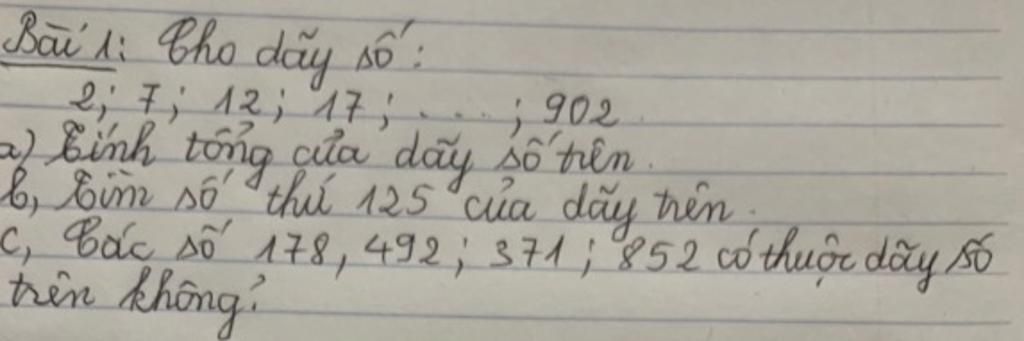 Bài 1: Cho dãy số:
2; 7; 12; 17; ....; 902
a) Tính tổng của dãy số trên.
b, Tìm số thứ 125 của dãy trên.
c, Các số 178, 492; 371; 852 có thuộc dãy số
trên không?